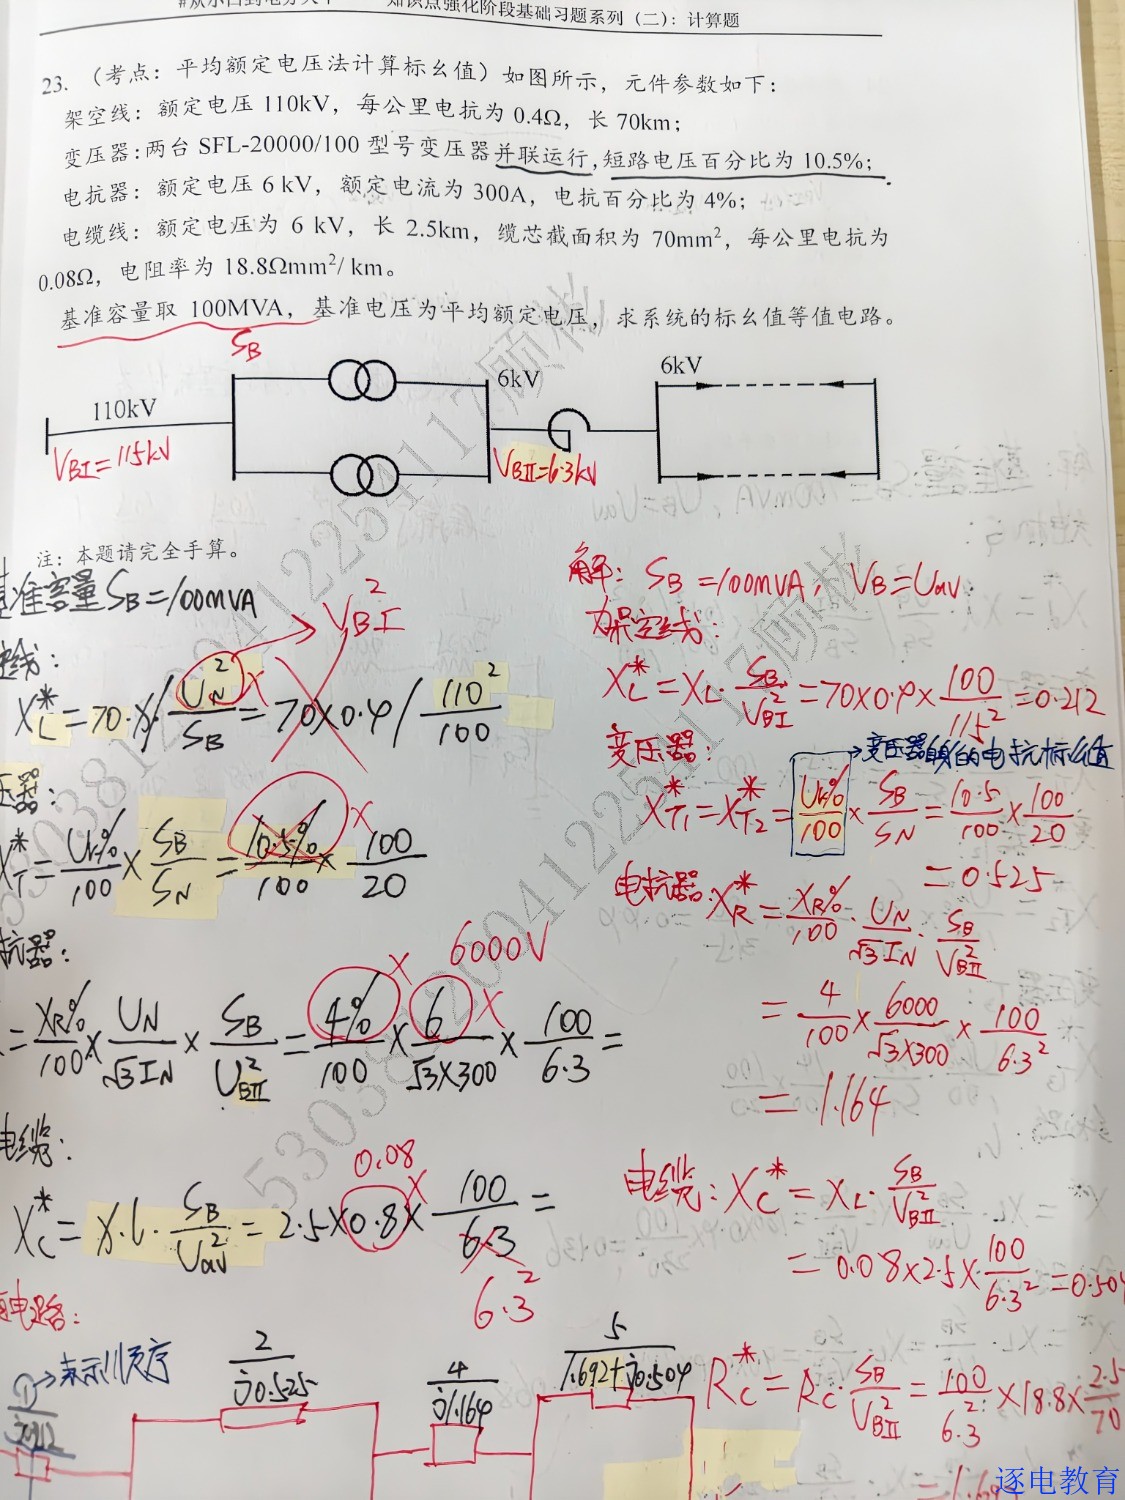 知识点强化阶段基础习题系列（二）：计算题
23.（考点：平均额定电压法计算标幺值）如图所示，元件参数如下：
架空线：额定电压 110kV，每公里电抗为 0.4Ω，长 70km；
变压器：两台 SFL-20000/100 型号变压器并联运行，短路电压百分比为 10.5%；
电抗器：额定电压 6 kV，额定电流为 300A，电抗百分比为 4%；
电缆线：额定电压为 6 kV，长 2.5km，缆芯截面积为 70mm²，每公里电抗为
0.08Ω，电阻率为 18.8Ωmm²/ km。
基准容量取 100MVA，基准电压为平均额定电压，求系统的标幺值等值电路。
SB
110kV
6kV
6kV
VBI=115kV
VBII=6.3kV
注：本题请完全手算。
基准容量SB=100MVA
VBI²
线：
XL*=70·x/UN²/SB=70×0.4/110²/100
压器：
XT*=Uk%/100×SB/SN=10.5%/100×100/20
抗器：
6000V
=XR%/100×UN/√3IN×SB/UBII²=4%/100×6/√3×300×100/6.3=
电缆：
0.08
XC*=x·l·SB/Uav²=2.5×0.8×100/6.3=
6.3²
电路：
①→表示顺序
2/j0.525
4/j1.164
5/1.692+j0.504
解：SB=100MVA，VB=Uav
架空线：
XL*=XL·SB/VBI²=70×0.4×100/115²=0.212
变压器：
→变压器自身的电抗标幺值
XT1*=XT2*=Uk%/100×SB/SN=10.5/100×100/20
=0.525
电抗器：XR*=XR%/100·UN/√3IN·SB/VBII²
=4/100×6000/√3×300×100/6.3²
=1.164
电缆：XC*=XL·SB/VBII²
=0.08×2.5×100/6.3²=0.504
RC*=RC·SB/VBII²=100/6.3²×18.8×2.5/70
逐电教育
530381200412254117顾彬